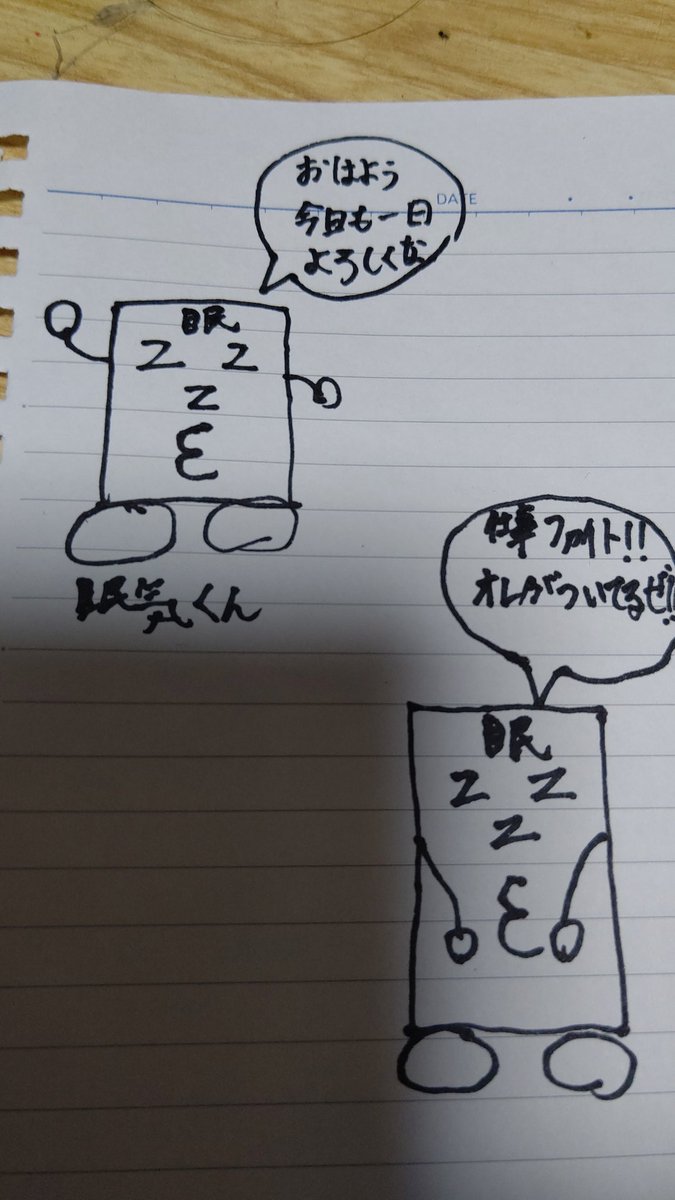 DATE
おはよう
今日も一日
よろしくな
眠
Z Z
Z
ε
眠気くん
仕事ファイト!!
オレがついてるぜ!!
眠
Z Z
Z
ε